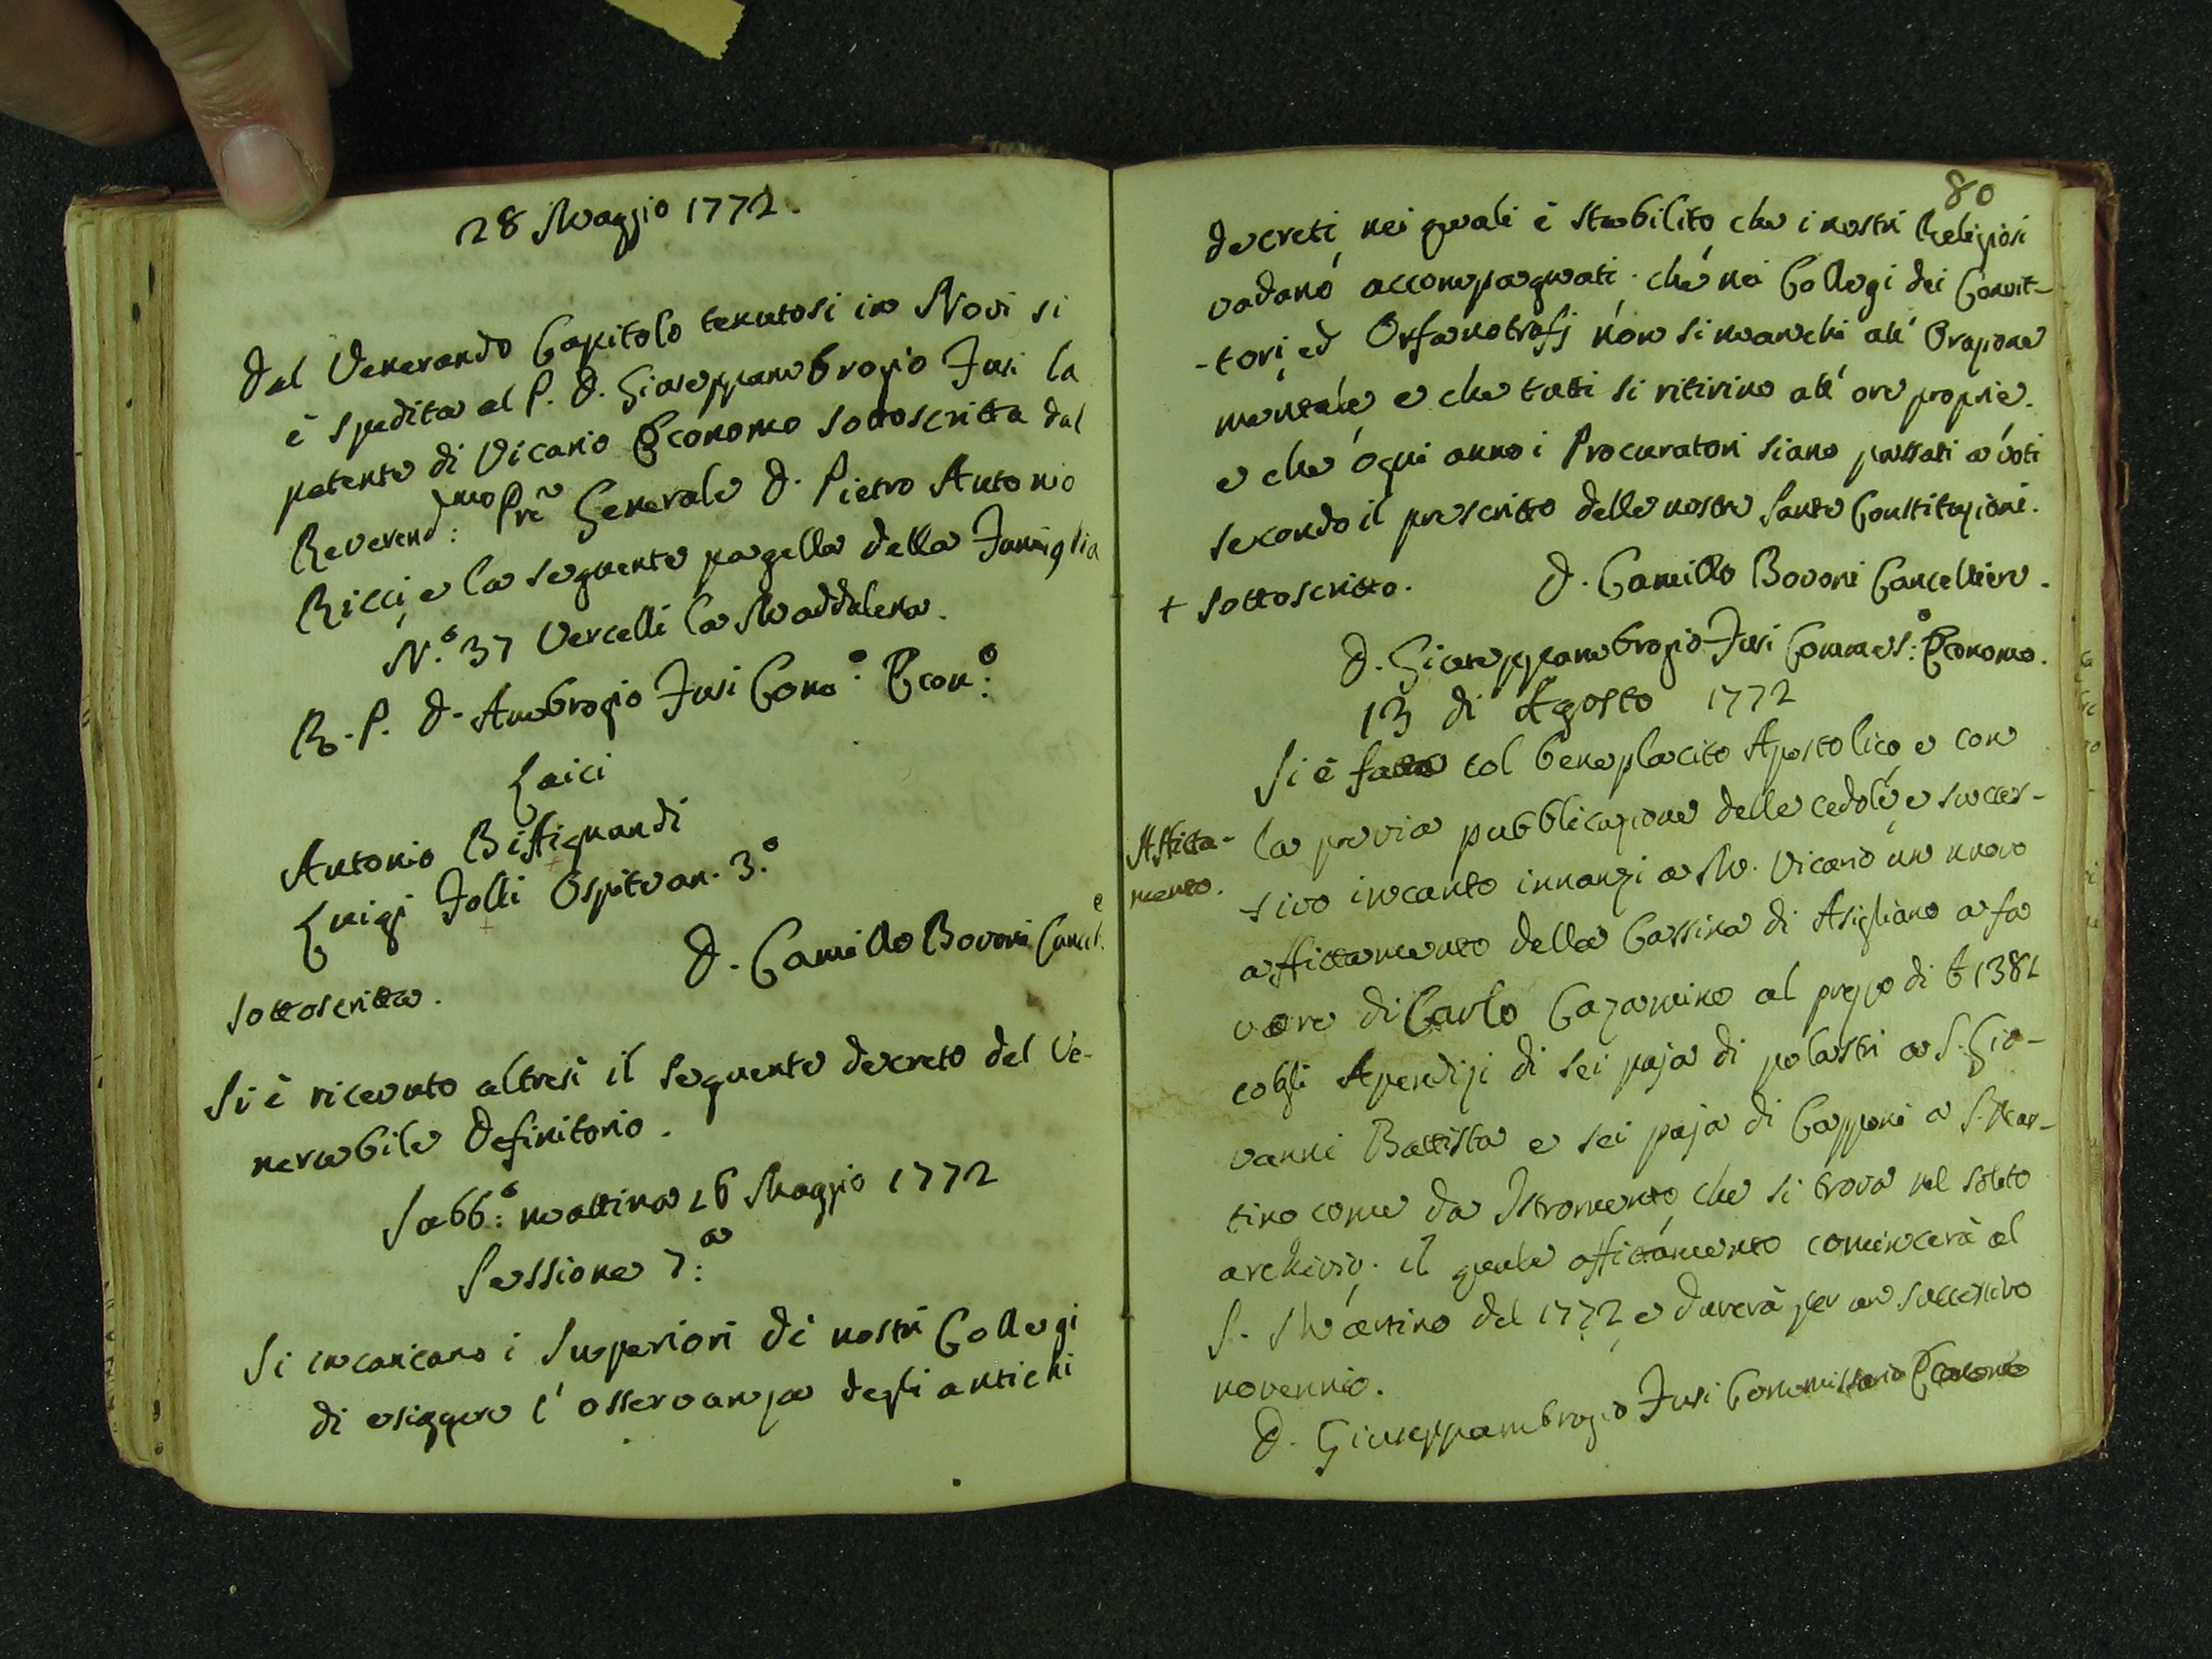 28 Maggio 1772.
Dal Venerando Capitolo tenutosi in Novi si
è spedita al P. D. Giuseppambrogio Fusi la
patente di Vicario Economo sottoscritta dal
Reverend:mo Pre Generale D. Pietro Antonio
Ricci, e la seguente pagella della Famiglia
N.o 37 Vercelli la Maddalena.
R. P. D. Ambrogio Fusi Com:o Econ:o
Laici
Antonio Bistignandi
Luigi Folli Ospite an. 3.o
D. Camillo Bovoni Cancel.e
sottoscritta.
Si è ricevuto altresì il seguente decreto del Ve-
nerabile Definitorio.
Sabb:o mattina 16 Maggio 1772
Sessione 7:a
Si incaricano i Superiori de nostri Collegi
di esiggere l'osservanza degli antichi
80
decreti, nei quali è stabilito che i nostri Religiosi
vadano accompagnati. che nei Collegi dei Convit-
-tori, ed Orfanotrofj non si manchi all'Orazione
mentale, e che tutti si ritirino all'ore proprie.
e che ogni anno i Procuratori siano passati a voti
secondo il prescritto delle nostre sante Constituzioni.
+ sottoscritto. D. Camillo Bovoni Cancelliere.
D. Giuseppambrogio Fusi Commes:o Economo.
13 di Agosto 1772
Affitta-
mento.
Si è fatto col beneplacito Apostolico, e con
la previa pubblicazione delle cedole, e succes-
-sivo incanto innanzi a M. Vicario un nuovo
affittamento della Cassina di Asigliano a fa
vore di Carlo Cazamino al prezzo di £ 1381
cogli Apendizi di sei paja di polastri a S. Gio-
vanni Battista e sei paja di Capponi a S. Mar-
tino come da Istromento, che si trova nel solito
archivio. il quale affittamento comincerà al
S. Martino del 1772, e durerà per un successivo
novennio.
D. Giuseppambrogio Fusi Commissario Economo